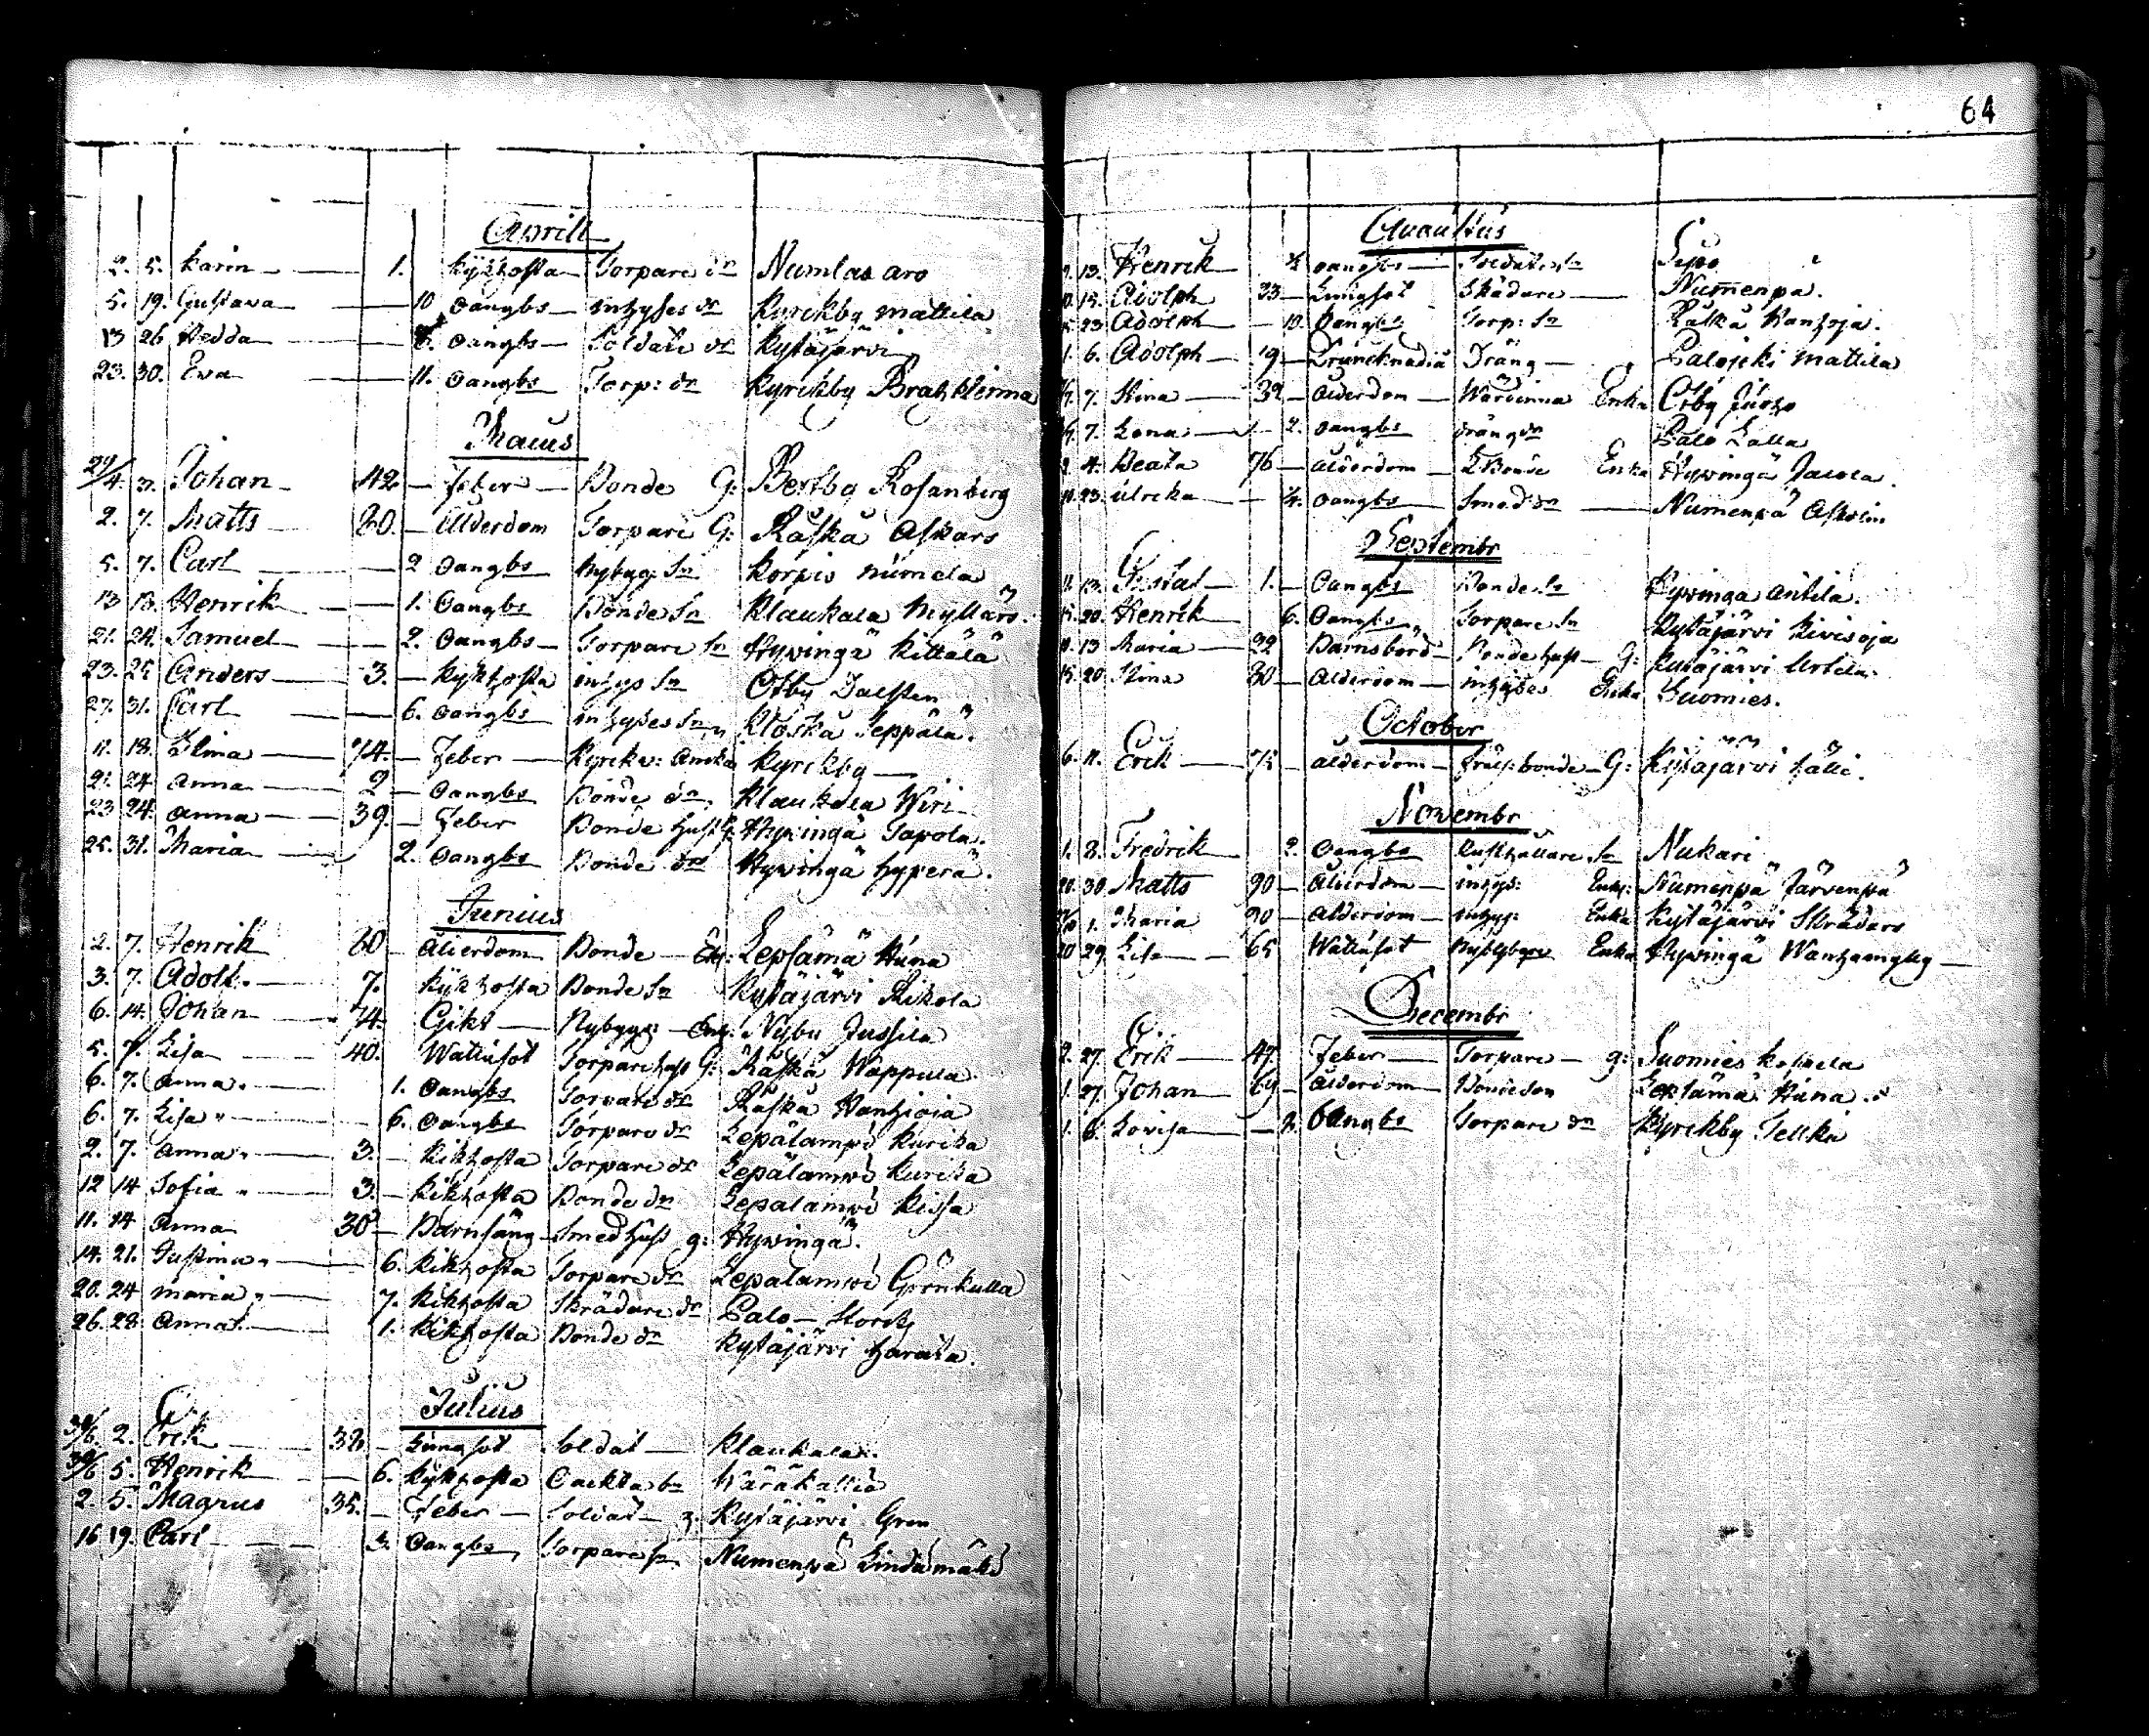 Aprill
2. 5. Karin 1. Kykhosta Torpare dr Numlas aro
5. 19. Gustava 10 oangbs inhyses dr Kyrckby mattila
13 26 Hedda 8. oangbs Soldate dr Kytäjärvi
23. 30. Ewa 11. oangbs Torp: dr Kyrckby
Maius
29/4. 3. Johan 42 Feber Bonde G: Rosenberg
2. 7. Matts 80. Ålderdom Torpare G: Råskå Askars
5. 7. Carl 2 oangbs Nybyg: Sn Korpis numela
13 13. Henrik 1. Oangbs Bonde Sn Klaukala Myllärs
21. 24. Samuel 2. Oangbs Torpare Sn Hywingä Kittälä
23. 25 Anders 3. Kykhosta inhys Sn Otby
27. 31. Carl 6. oangbs inhyses Sn Seppälä.
11. 18. Elina 74. Feber Kyrckby
21. 24 anna 2 oangbs Bonde dr Klaukala Wiri
23 24. anna 39. Feber Bonde hust: G. Hywingä Tapola.
25. 31. Maria 2. oangbs Bonde dr Hywingä hyperä.
Junius
2. 7. Henrik 60 Ålderdom Bonde Enk: Lepsämä Huna
3. 7. Adolf. 7. Kykhosta Bonde Sn Kytäjärvi Rikola
6. 14. Johan 74. Gikt Nybygg: Enk: Nybu Jussila
5. 7. Lisa 40. Wattusot Torpare hust G: Råskå Wappula
6. 7. anna. 1. oangbs Torpare dr Råskå Hantzioia
6. 7. Lisa 6. oangbs Torpare dr Lepälampi Kurisa
2. 7. anna 3. Kikhosta Torpare dr Lepälampi Kurisa
12 14 Sofia 3. Kikhosta Bonde dr Lepälampi Kissa
11. 14 anna 30 Barnsäng Smed hust g: Hywingä.
14. 21. Justina 6. Kikhosta Torpare dr Lepälampi Grönkulla
20. 24 maria 7. Kikhosta Skrädare dr Palo
26. 28. anna 1. Kikhosta Bonde dr Kytäjärvi harala.
Julius
30/6. 2. Erik 32 Lungsot Soldat Klaukala.
30/6 5. Henrik 6. Kykhosta Wäräkallio
2. 5. Magnus 35. Feber Soldat g. Kytäjärvi Gren
16 19. Carl 3. Oangbs Torpare Sn Numenpä Lindumäki
64
Augustus
13. Henrik oangbs Soldat Sn Sepo
15. Adolph 33 Lungsot Skådare Numenpä.
23. Adolph 10. Oangbs Torp: Sn Råskå Hantzoja.
1. 6. Adolph 19 Drunknadiä Dräng Palojoki mattila
7. Stina 32 Ålderdom Wärdinna Enka Otby Juoho
7. Lena 2. oangbs dräng dr Palo Lalla
4. Beata 76 ålderdom Bonde Enka Hywingä Jacola.
23. Ulrika oangbs Smed dr Numenpä
Septembr
13. Gustaf 1. Oangbs Bonde Sn Hywinga antila.
15. 20. Henrik 6. Oangbs Torpare Sn Kytäjärvi Kivisoja
11. 13 Maria 32 Barnsbörd Bonde hust G: Kytäjärvi Urtila
15. 20. Stina 80 Ålderdom inhyses Enka Suomies.
October
6. 11. Erik 75 ålderdom Frälse bonde G: Kytäjärvi hälli.
Novembr
1. 8. Fredrik 2. oangbs Rusthållare Sn Nukari
20. 30. Matts 90 Ålderdom inhys: Enk: Numenpä Järvenpä
1. Maria 90 Ålderdom inhys: Enka Kytäjärvi Skradars
20 29. Lisa 65 Wattusot Enka Hywingä
Decembr
2. 27. Erik 47. Feber Torpare g: Suomies
1. 27. Johan 69 ålderdom Bondeson Lepsämä Huna
1. 6. Lovisa 2. Oangbs Torpare dr Kyrckby Tellki